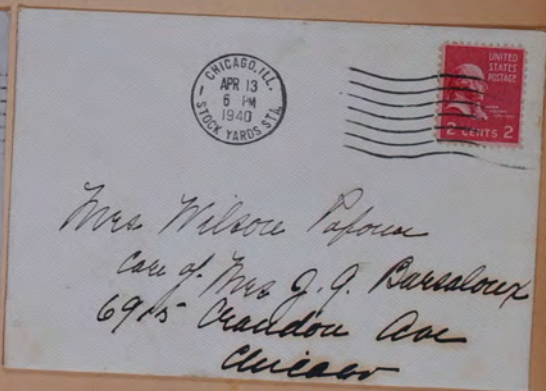 CHICAGO, ILL.
APR 13
6 PM
1940
STOCK YARDS STA.
UNITED
STATES
POSTAGE
2 CENTS 2
Mrs Wilson
Care of Mrs J. G. Barsaloux
6915 Crandon Ave
Chicago